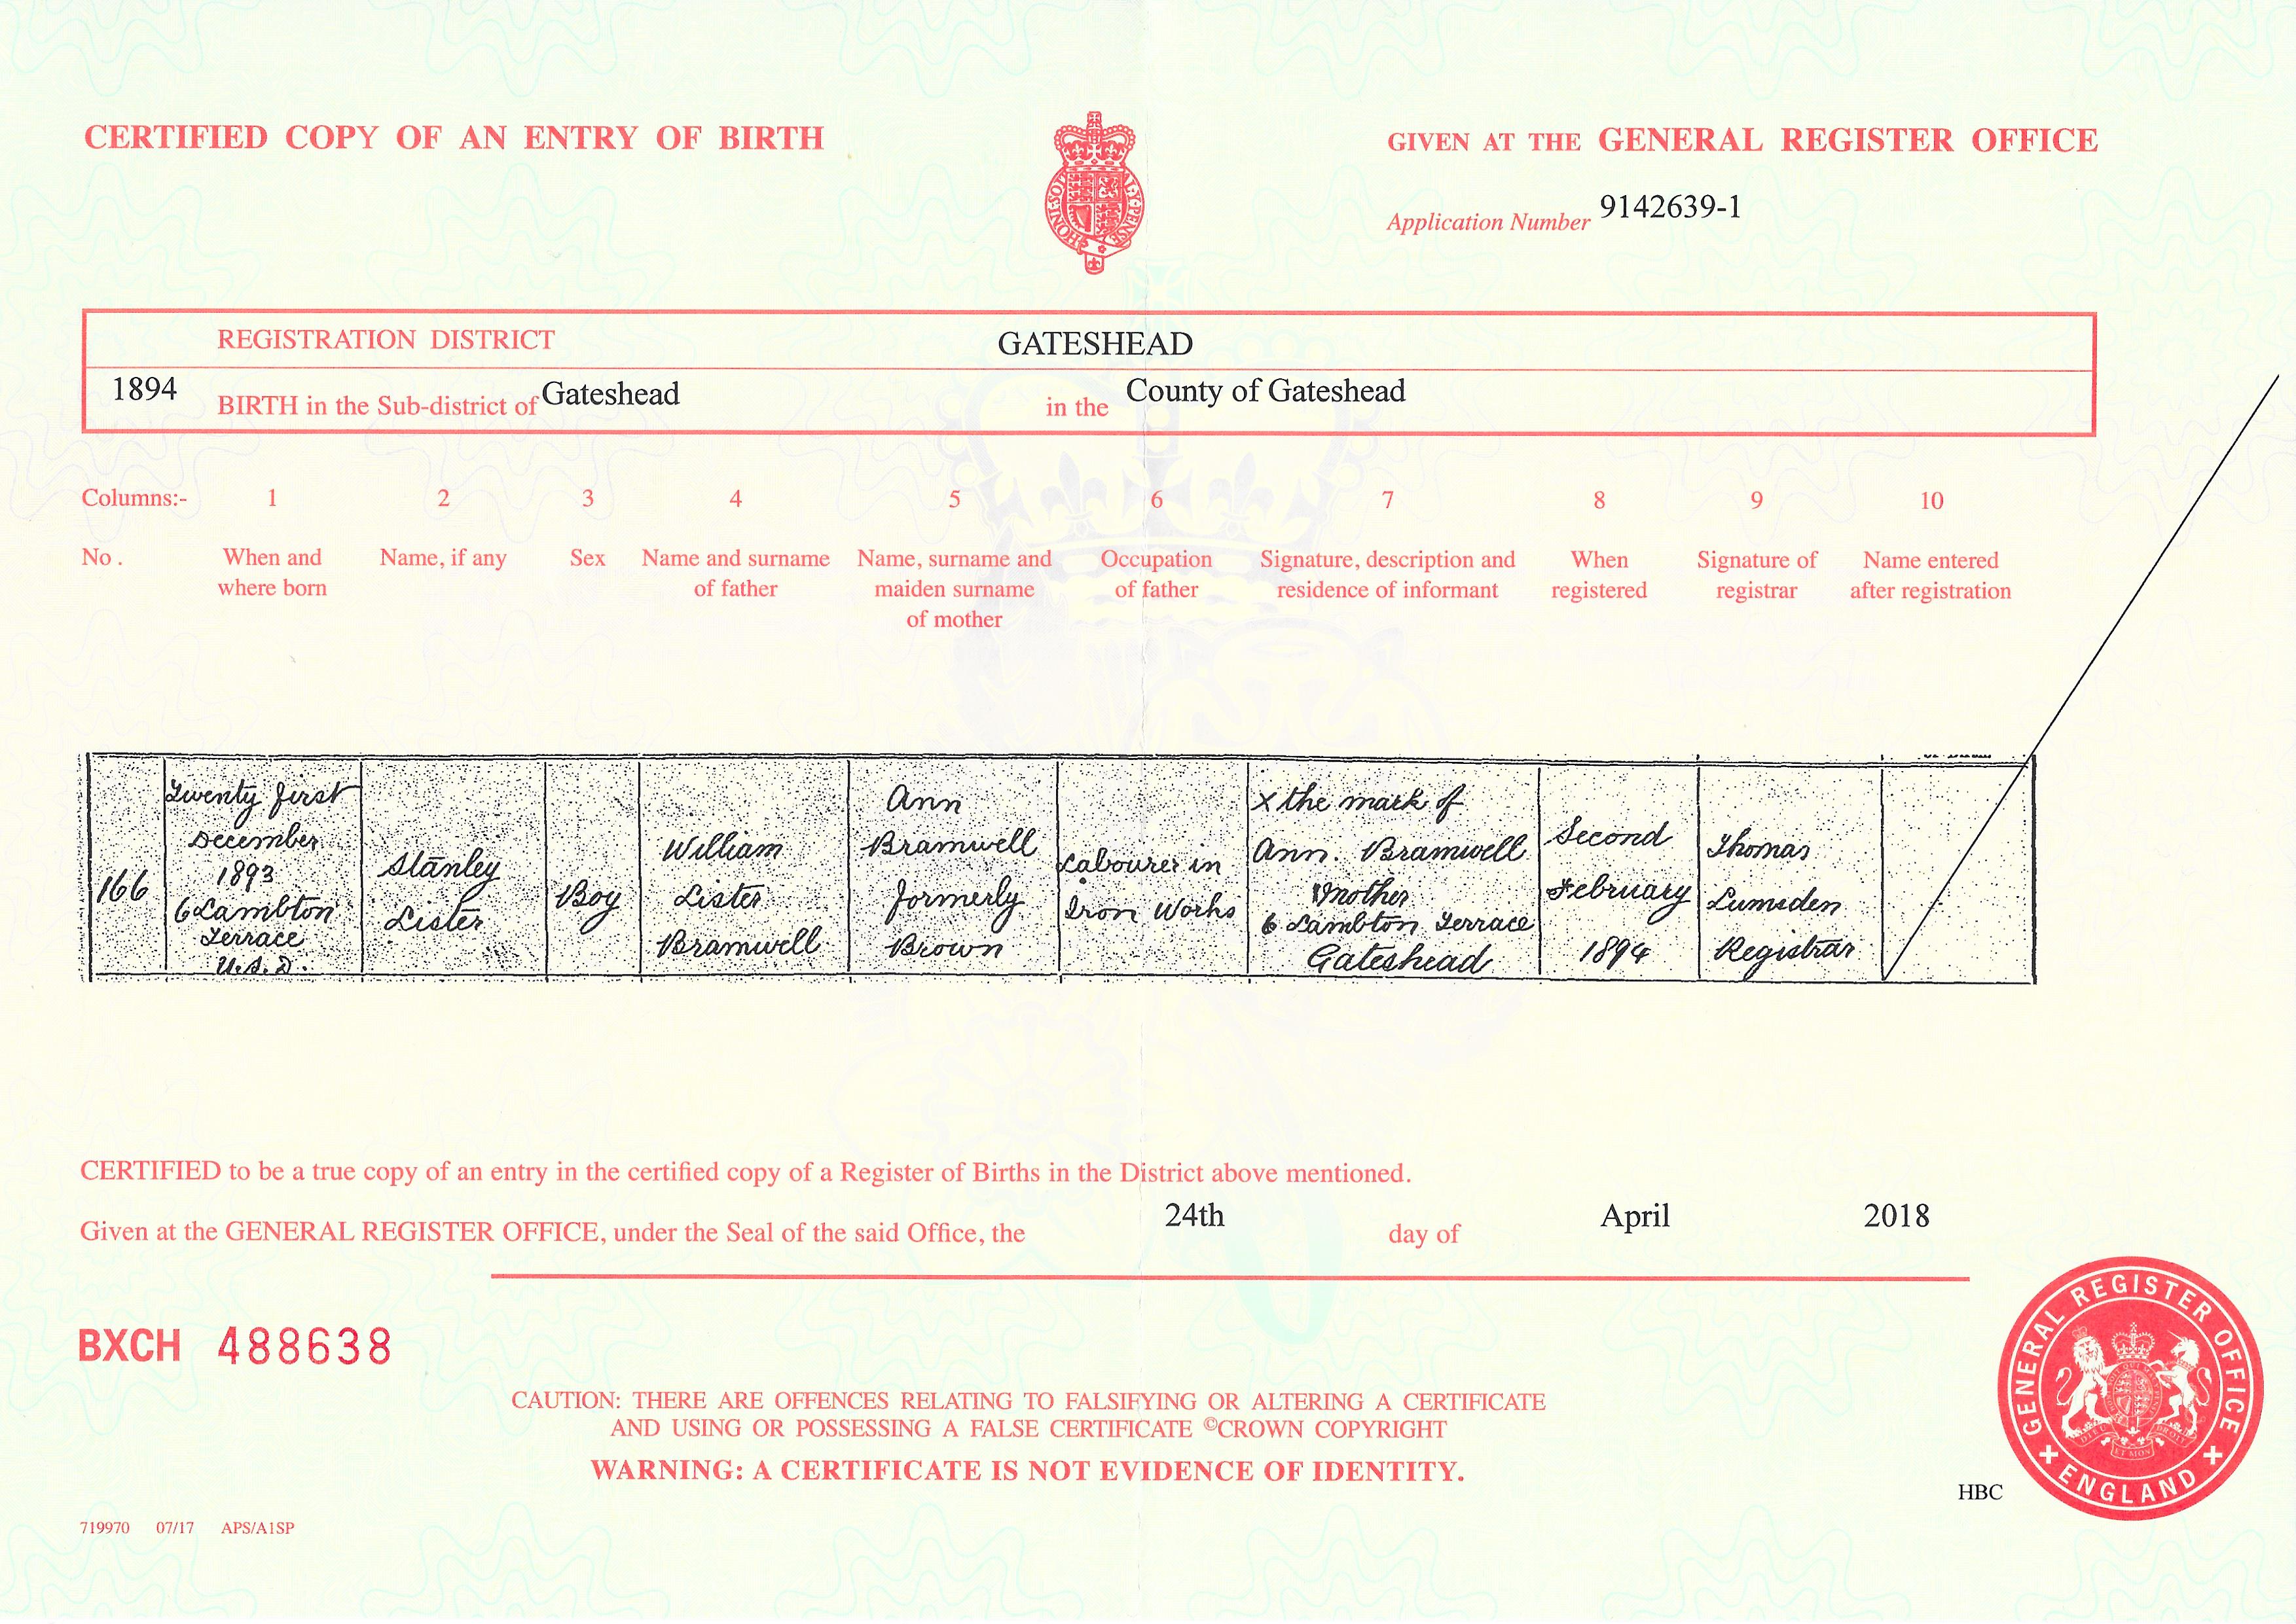 CERTIFIED COPY OF AN ENTRY OF BIRTH
GIVEN AT THE GENERAL REGISTER OFFICE
Application Number 9142639-1
REGISTRATION DISTRICT GATESHEAD
1894 BIRTH in the Sub-district of Gateshead in the County of Gateshead
Columns:- 1 2 3 4 5 6 7 8 9 10
No. When and where born
Name, if any
Sex
Name and surname of father
Name, surname and maiden surname of mother
Occupation of father
Signature, description and residence of informant
When registered
Signature of registrar
Name entered after registration
166
Twenty first
December
1893
6 Lambton
Terrace
U.S.D.
Stanley
Lister
Boy
William
Lister
Bramwell
Ann
Bramwell
formerly
Brown
Labourer in
Iron Works
X the mark of
Ann. Bramwell
Mother
6 Lambton Terrace
Gateshead
Second
February
1894
Thomas
Lumsden
Registrar
CERTIFIED to be a true copy of an entry in the certified copy of a Register of Births in the District above mentioned.
Given at the GENERAL REGISTER OFFICE, under the Seal of the said Office, the 24th day of April 2018
BXCH 488638
CAUTION: THERE ARE OFFENCES RELATING TO FALSIFYING OR ALTERING A CERTIFICATE
AND USING OR POSSESSING A FALSE CERTIFICATE ©CROWN COPYRIGHT
WARNING: A CERTIFICATE IS NOT EVIDENCE OF IDENTITY.
GENERAL REGISTER OFFICE
ENGLAND
HBC
719970 07/17 APS/A1SP